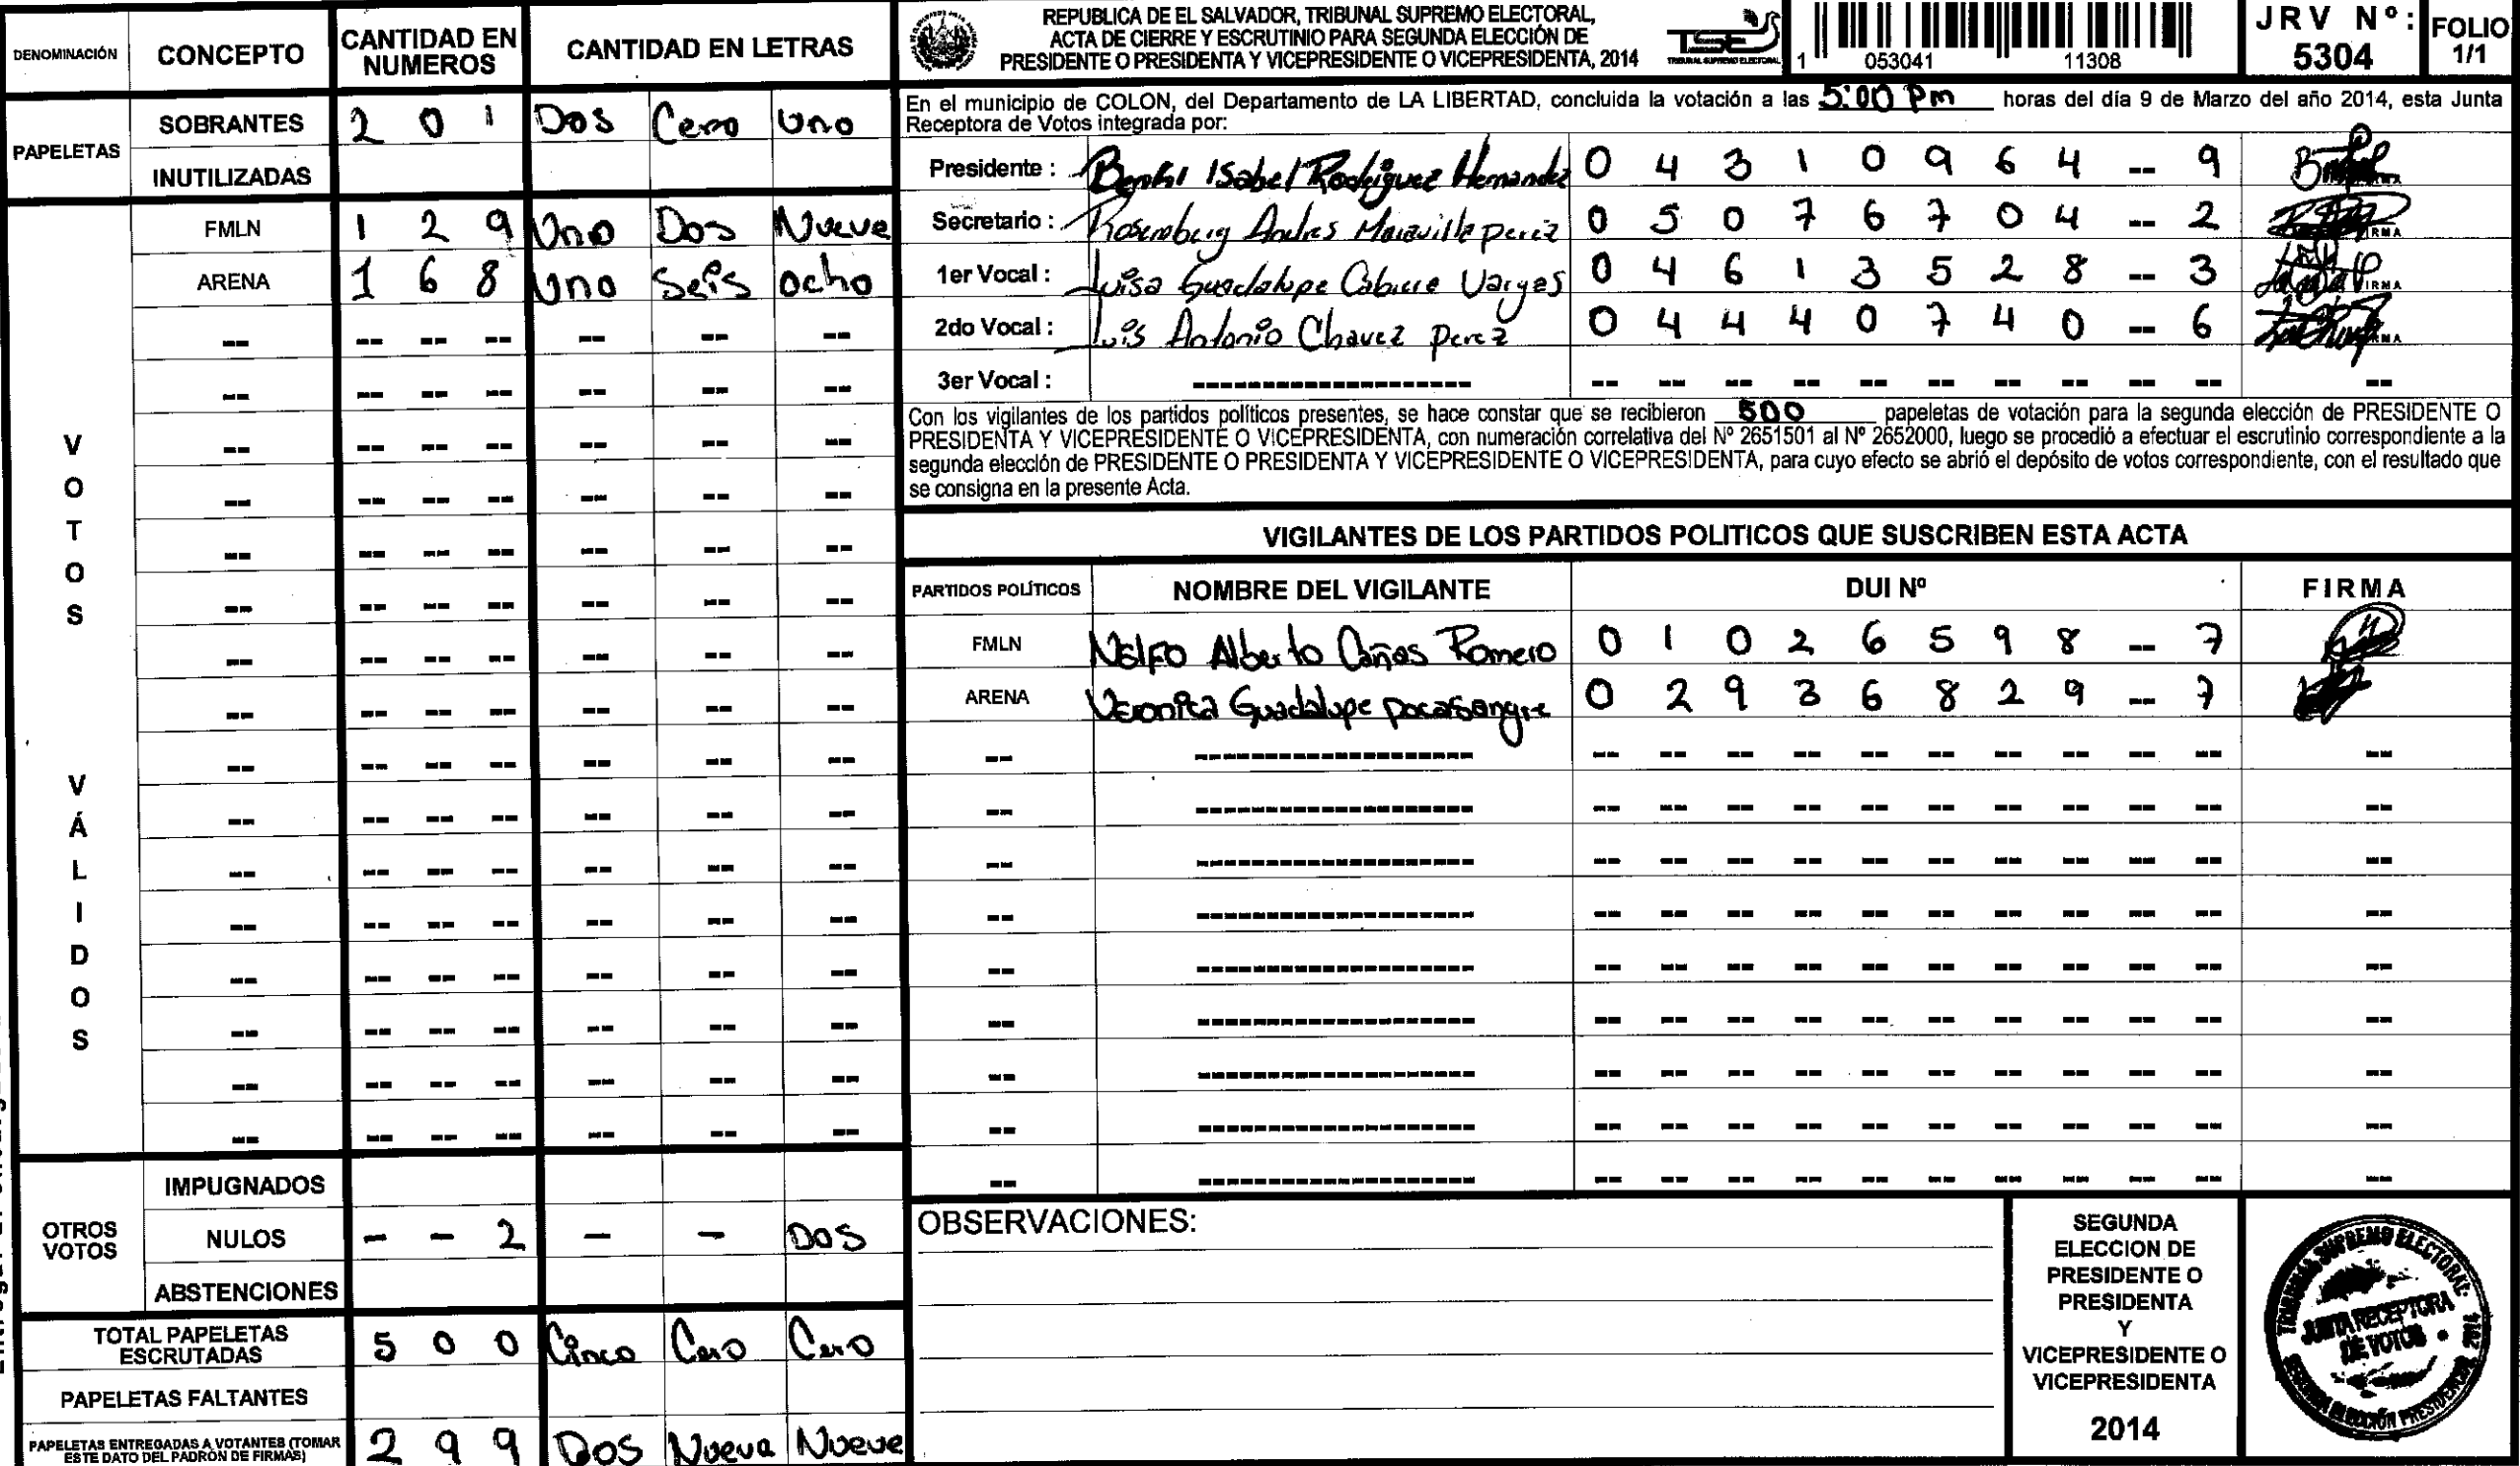 DENOMINACIÓN CONCEPTO CANTIDAD EN NUMEROS CANTIDAD EN LETRAS
PAPELETAS
SOBRANTES 2 0 1 Dos Cero Uno
INUTILIZADAS
VOTOS VÁLIDOS
FMLN 1 2 9 Uno Dos Nueve
ARENA 1 6 8 Uno Seis ocho
OTROS VOTOS
IMPUGNADOS
NULOS - - 2 - - Dos
ABSTENCIONES
TOTAL PAPELETAS ESCRUTADAS 5 0 0 Cinco Cero Cero
PAPELETAS FALTANTES
PAPELETAS ENTREGADAS A VOTANTES (TOMAR ESTE DATO DEL PADRÓN DE FIRMAS) 2 9 9 Dos Nueva Nueve
REPUBLICA DE EL SALVADOR, TRIBUNAL SUPREMO ELECTORAL,
ACTA DE CIERRE Y ESCRUTINIO PARA SEGUNDA ELECCIÓN DE
PRESIDENTE O PRESIDENTA Y VICEPRESIDENTE O VICEPRESIDENTA, 2014
TSE
TRIBUNAL SUPREMO ELECTORAL
1 053041 11308
JRV Nº: 5304
FOLIO 1/1
En el municipio de COLON, del Departamento de LA LIBERTAD, concluida la votación a las 5:00 Pm horas del día 9 de Marzo del año 2014, esta Junta
Receptora de Votos integrada por:
Presidente : Isabel Rodriguez Hernandez 0 4 3 1 0 9 6 4 -- 9
Secretario : Rosemberg Andres Maravilla perez 0 5 0 7 6 7 0 4 -- 2
1er Vocal : Luisa Guadalupe Vargas 0 4 6 1 3 5 2 8 -- 3
2do Vocal : Luis Antonio Chavez perez 0 4 4 4 0 7 4 0 -- 6
3er Vocal :
Con los vigilantes de los partidos políticos presentes, se hace constar que se recibieron 500 papeletas de votación para la segunda elección de PRESIDENTE O
PRESIDENTA Y VICEPRESIDENTE O VICEPRESIDENTA, con numeración correlativa del Nº 2651501 al Nº 2652000, luego se procedió a efectuar el escrutinio correspondiente a la
segunda elección de PRESIDENTE O PRESIDENTA Y VICEPRESIDENTE O VICEPRESIDENTA, para cuyo efecto se abrió el depósito de votos correspondiente, con el resultado que
se consigna en la presente Acta.
VIGILANTES DE LOS PARTIDOS POLITICOS QUE SUSCRIBEN ESTA ACTA
PARTIDOS POLÍTICOS NOMBRE DEL VIGILANTE DUI Nº FIRMA
FMLN Alberto Cañas Romero 0 1 0 2 6 5 9 8 -- 7
ARENA Veronica Guadalupe pocasangre 0 2 9 3 6 8 2 9 -- 7
OBSERVACIONES:
SEGUNDA
ELECCION DE
PRESIDENTE O
PRESIDENTA
Y
VICEPRESIDENTE O
VICEPRESIDENTA
2014
TRIBUNAL SUPREMO ELECTORAL
JUNTA RECEPTORA
DE VOTOS
SEGUNDA ELECCIÓN PRESIDENCIAL 2014